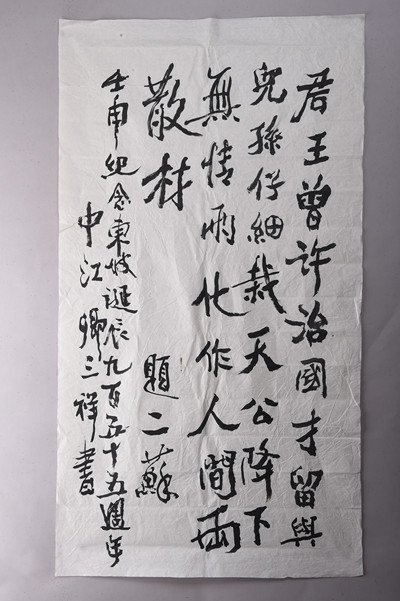 君王曾许治國才留與
兒孫仔細栽天公降下
無情雨化作人間兩
散材
題二蘇
壬申紀念東坡誕辰九百五十五週年
中江卿三祥書